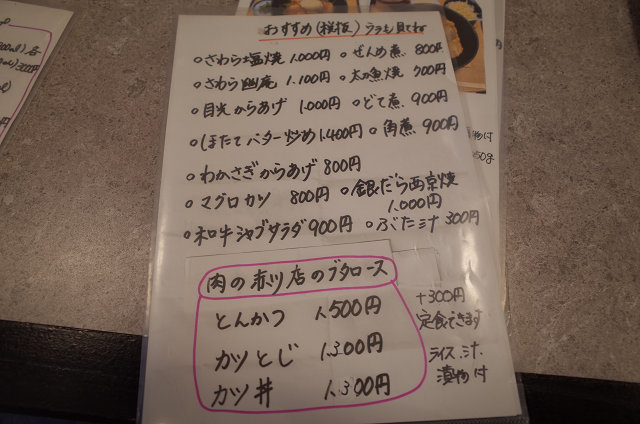 おすすめ(税抜) ウラも見てね
○さわら塩焼 1,000円 ○ぜんめ煮 800円
○さわら幽庵 1,100円 ○太刀魚焼 700円
○目光からあげ 1,000円 ○どて煮 900円
○ほたてバター炒め 1,400円 ○角煮 900円
○わかさぎからあげ 800円
○マグロカツ 800円 ○銀だら西京焼 1,000円
○和牛シャブサラダ 900円 ○ぶた汁 300円
肉の赤ツ店のブタロース
とんかつ 1,500円
カツとじ 1,300円
カツ丼 1,300円
+300円
定食できます
ライス、汁、
漬物付